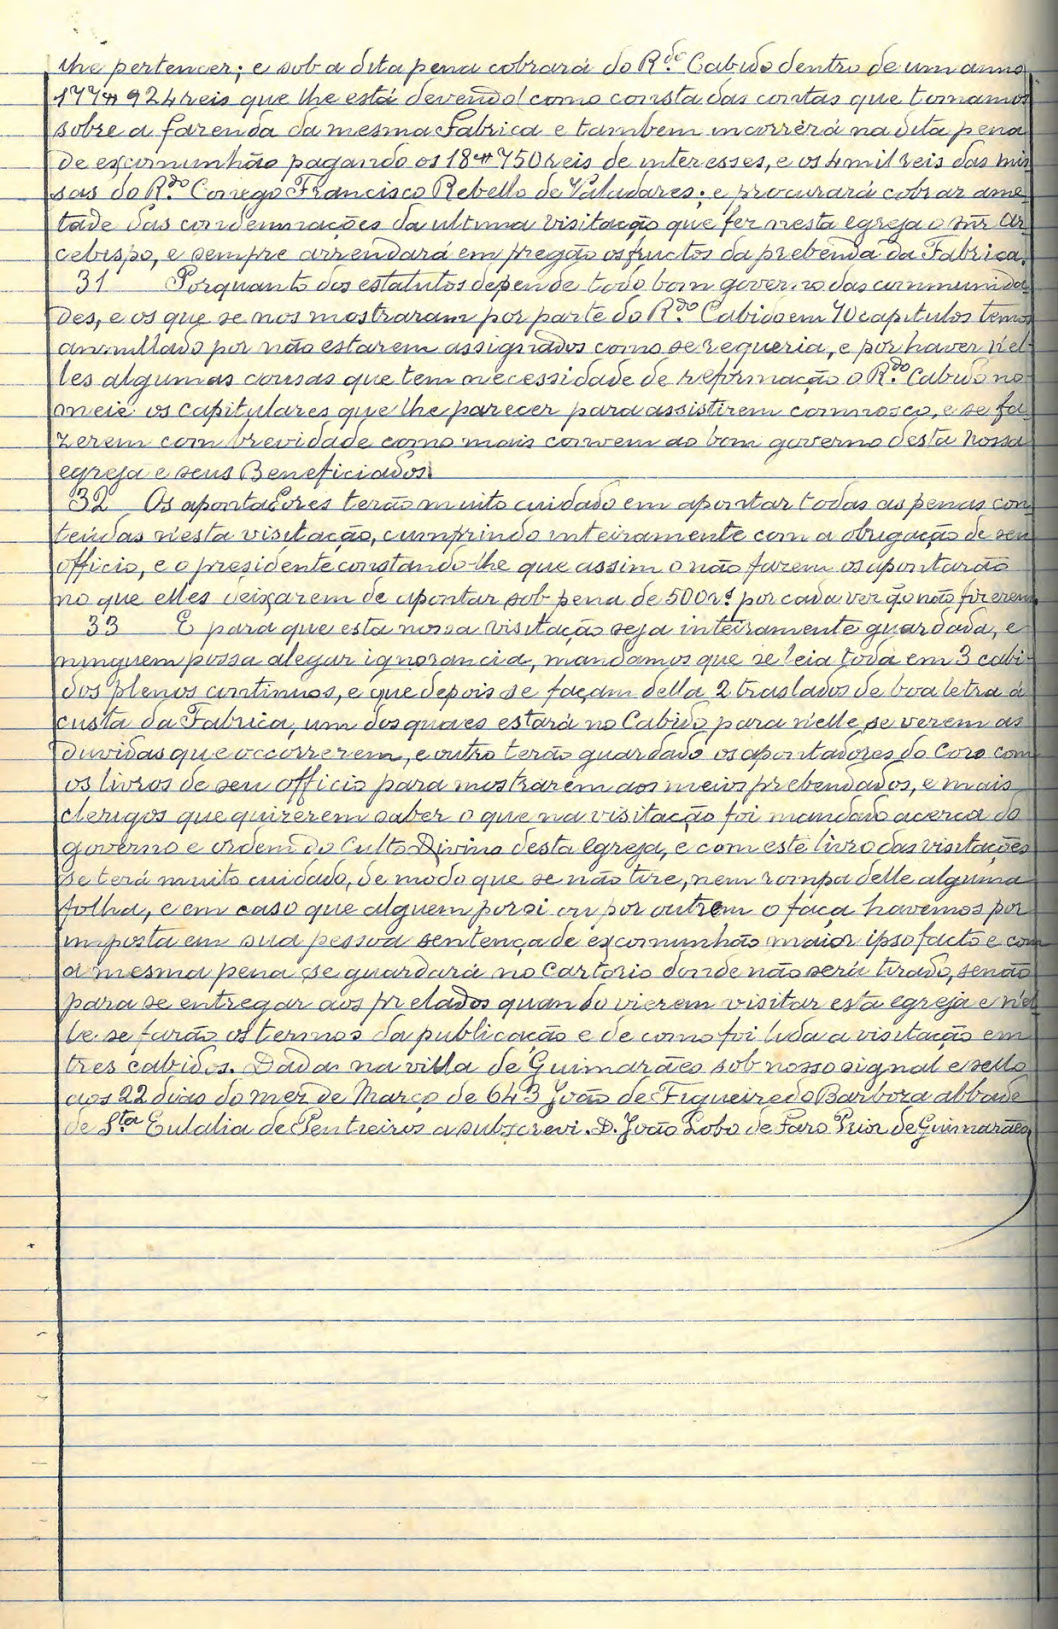 lhe pertencer; e sob a dita pena cobrará do R.do Cabido dentro de um anno
177#924 reis que lhe está devendo como consta das contas que tomamos
sobre a fazenda da mesma Fabrica e tambem incorrerá na dita pena
de excomunhão pagando os 18#750 reis de interesses, e os 4 mil reis das mis
sas do R.do Conego Francisco Rebello de Valadares; e procurará cobrar ame
tade das condemnações da ultima visitação que fez nesta egreja o snr Ar
cebispo, e sempre arrendará em pregão os fructos da prebenda da Fabrica.
31 Porquanto dos estatutos depende todo bom governo das communida
des, e os que se nos mostraram por parte do R.do Cabido em 70 capitulos temos
annullado por não estarem assignados como se requeria, e por haver n'el
les algumas cousas que tem necessidade de reformação o R.do Cabido no
meie os capitulares que lhe parecer para assistirem comnosco, e se fa
zerem com brevidade como mais convem ao bom governo desta nossa
egreja e seus Beneficiados.
32 Os apontadores terão muito cuidado em apontar todas as penas con
teúdas n'esta visitação, cumprindo inteiramente com a obrigação de seu
officio, e o presidente constando-lhe que assim o não fazem os apontarão
no que elles deixarem de apontar sob pena de 500 rs. por cada vez q̃ o não fizerem
33 E para que esta nossa visitação seja inteiramente guardada, e
ninguem possa alegar ignorancia, mandamos que se leia toda em 3 cabi
dos plenos continuos, e que depois se façam della 2 traslados de boa letra á
custa da Fabrica, um dos quaes estará no Cabido para n'elle se verem as
duvidas que occorrerem, e outro terão guardado os apontadores do Coro com
os livros de seu officio para mostrarem aos meios prebendados, e mais
clerigos que quizerem saber o que na visitação foi mandado acerca do
governo e ordem do Culto Divino desta Egreja, e com este livro das visitações
se terá muito cuidado, de modo que se não tire, nem rompa delle alguma
folha, e em caso que alguem por si ou por outrem o faça havemos por
imposta em sua pessoa sentença de excomunhão maior ipso facto e com
a mesma pena se guardará no Cartorio donde não será tirado, senão
para se entregar aos prelados quando vierem visitar esta egreja e n'el
le se farão os termos da publicação e de como foi lida a visitação em
tres cabidos. Dada na villa de Guimarães sob nosso signal e sello
aos 22 dias do mez de Março de 643 João de Figueiredo Barboza abbade
de Sta Eulalia de Pentieiros a subscrevi. D. João Lobo de Faro Prior de Guimarães